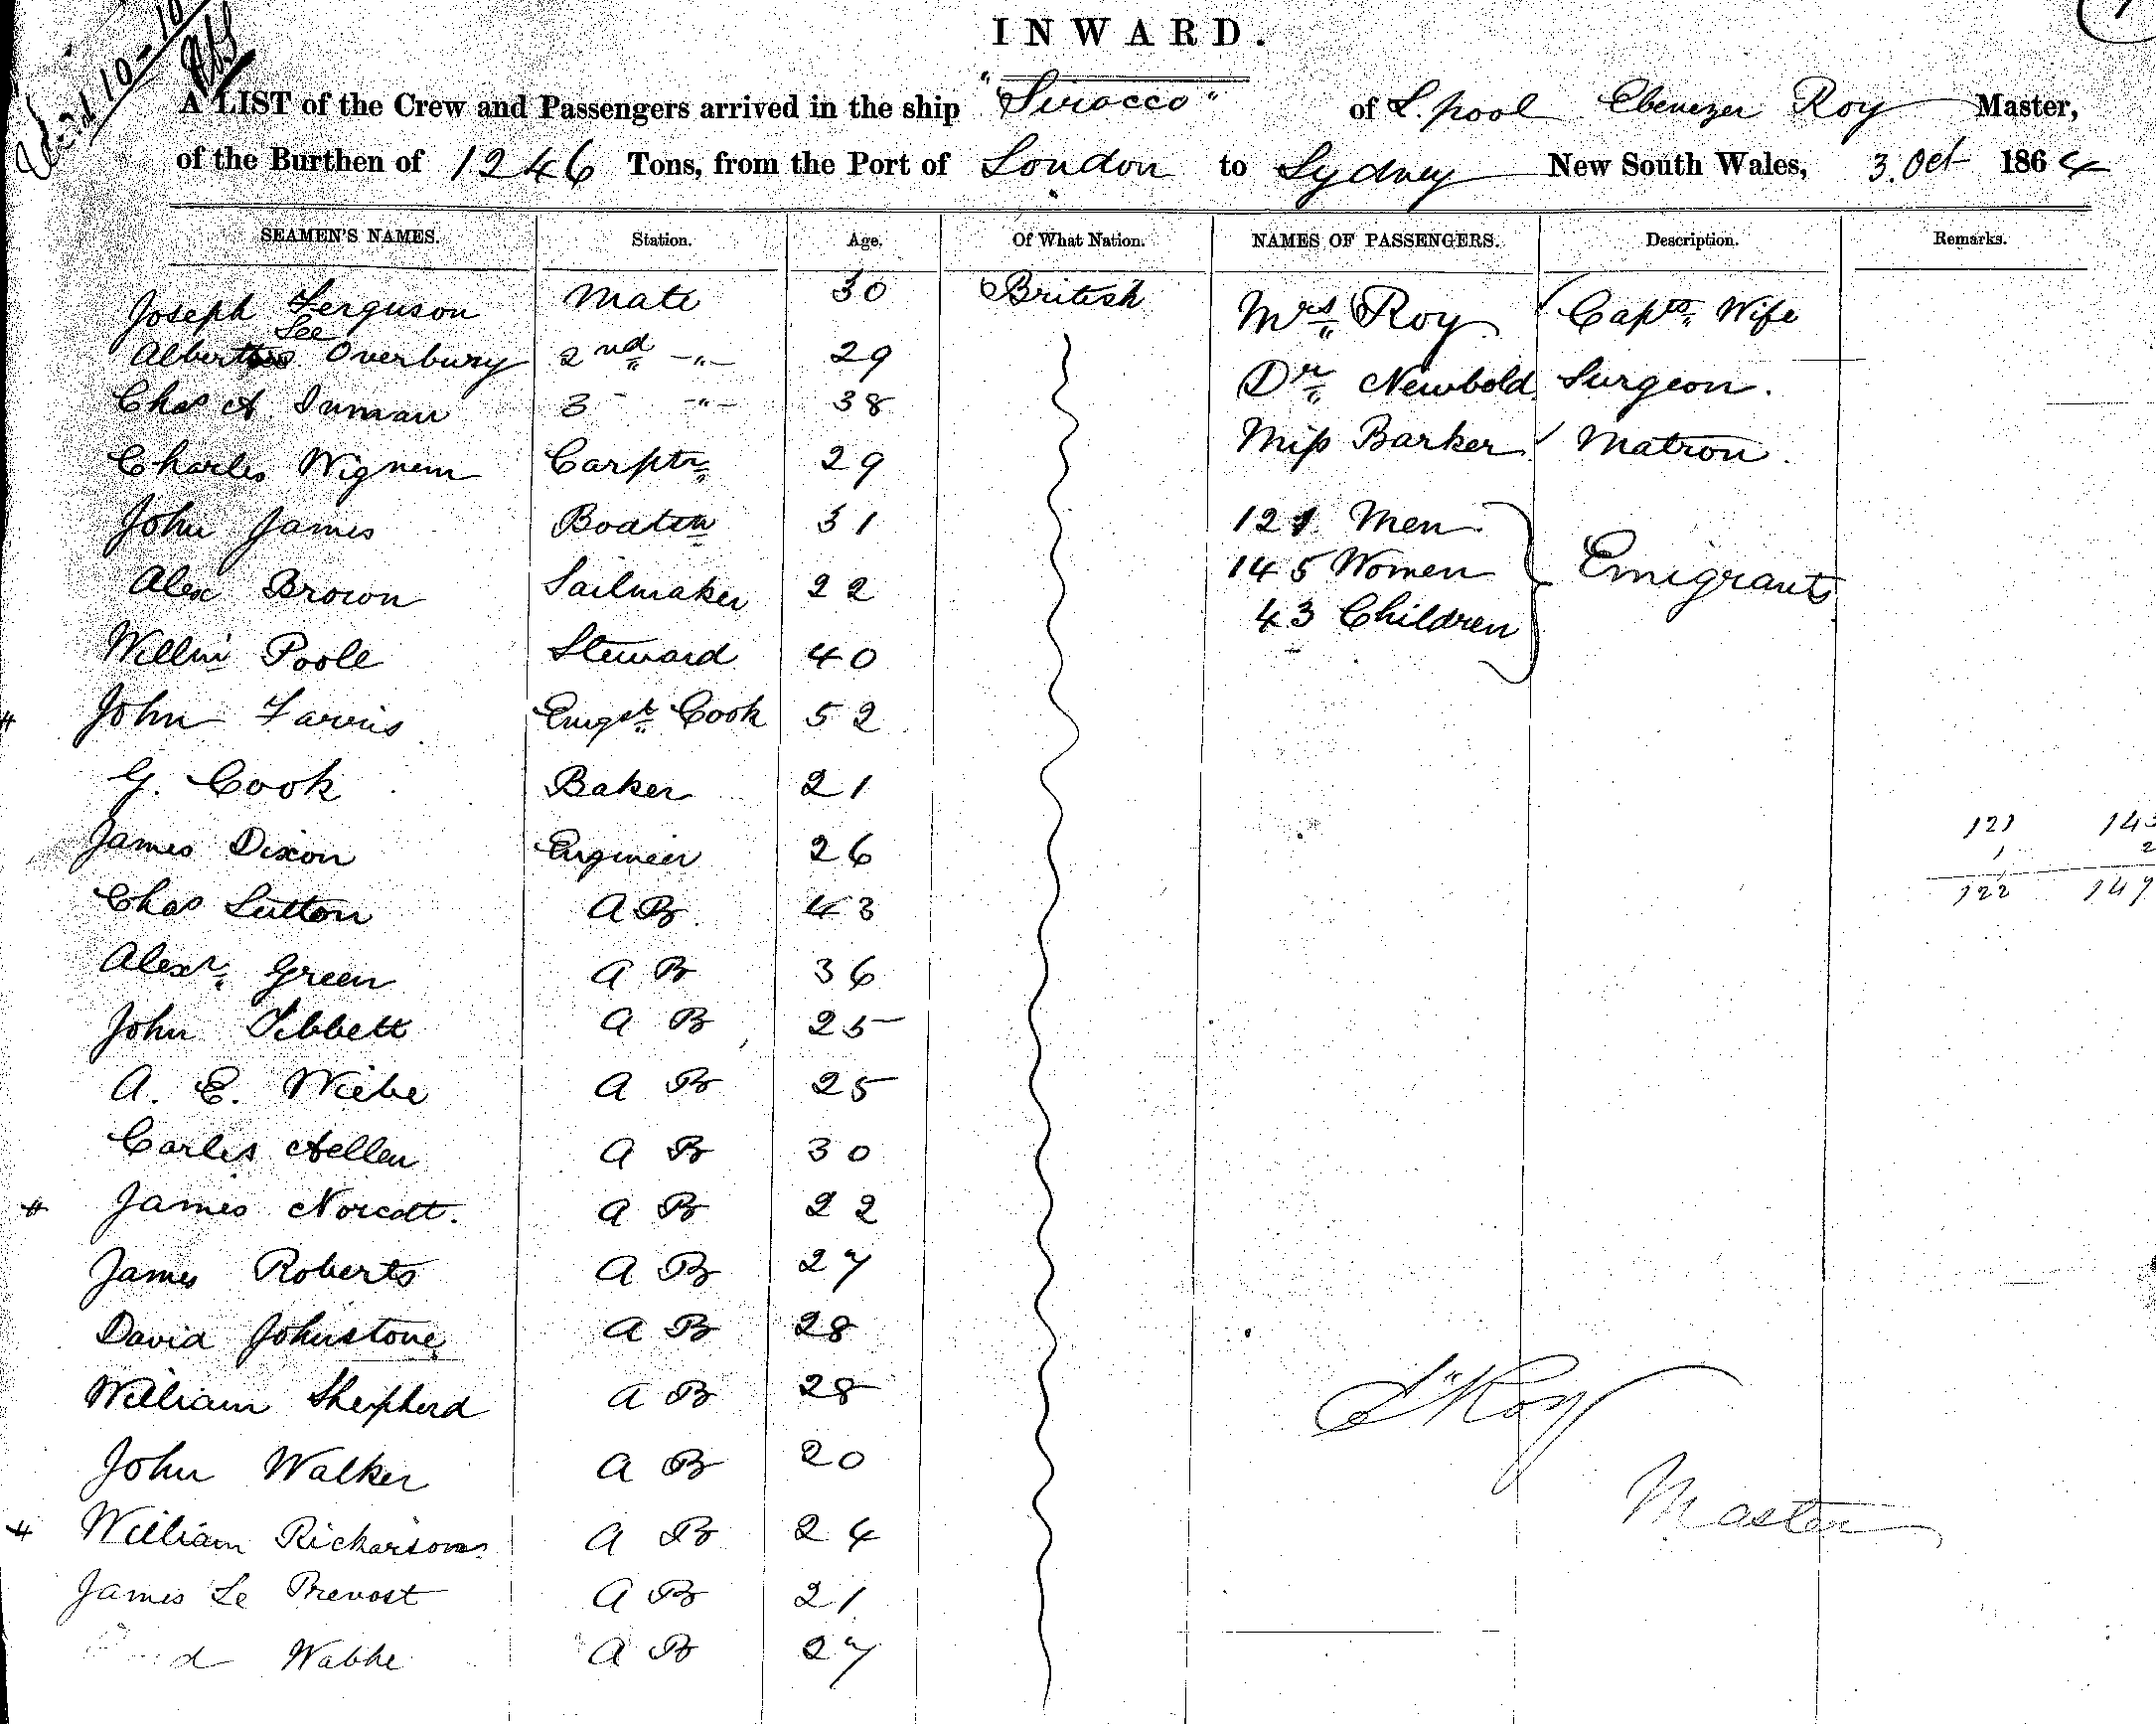 INWARD.
A LIST of the Crew and Passengers arrived in the ship "Sirocco" of L.pool Ebenezer Roy Master,
of the Burthen of 1246 Tons, from the Port of London to Sydney New South Wales, 3. Oct 1864
SEAMEN'S NAMES. Station. Age. Of What Nation. NAMES OF PASSENGERS. Description. Remarks.
Joseph Ferguson Mate 30 British Mrs Roy Capts Wife
Lee
Albert Overbury 2nd -"- 29 Dr Newbold Surgeon.
Chas A. Inman 3 -"- 38 Miss Barker Matron.
Charles Wignem Carptr 29
John James Boatsn 31 121 Men
Alex Brown Sailmaker 22 145 Women Emigrants
Willm Poole Steward 40 43 Children
John Farvis Emgrt Cook 52
G. Cook Baker 21
James Dixon Engineer 26 121 143
1 2
Chas Sutton AB. 43 122 147
Alexr Green AB 36
John Tibbett AB 25
A. E. Wiebe AB 25
Carles Aellen AB 30
James Norcott. AB 22
James Roberts AB 27
David Johnstone AB 28
William Shepherd AB 28
E Roy
John Walker AB 20
Master
William Rickarson AB 24
James Le Prevost AB 21
Wabhe AB 27